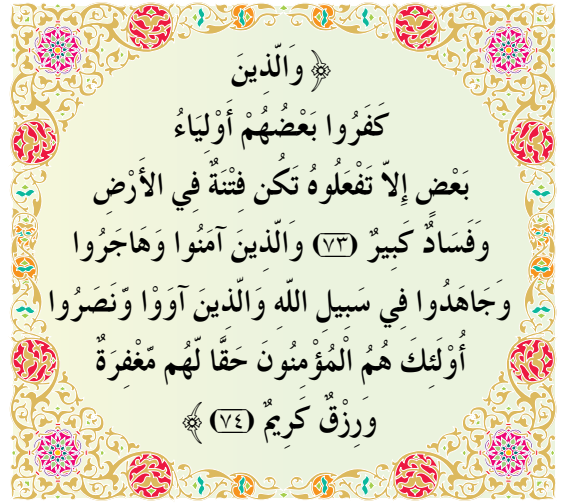 ﴿ وَالَّذِينَ
كَفَرُوا بَعْضُهُمْ أَوْلِيَاءُ
بَعْضٍ إِلاَّ تَفْعَلُوهُ تَكُن فِتْنَةٌ فِي الأَرْضِ
وَفَسَادٌ كَبِيرٌ (٧٣) وَالَّذِينَ آمَنُوا وَهَاجَرُوا
وَجَاهَدُوا فِي سَبِيلِ اللّهِ وَالَّذِينَ آوَوْا وَّنَصَرُوا
أُوْلَئِكَ هُمُ الْمُؤْمِنُونَ حَقًّا لَّهُم مَّغْفِرَةٌ
وَرِزْقٌ كَرِيمٌ (٧٤) ﴾